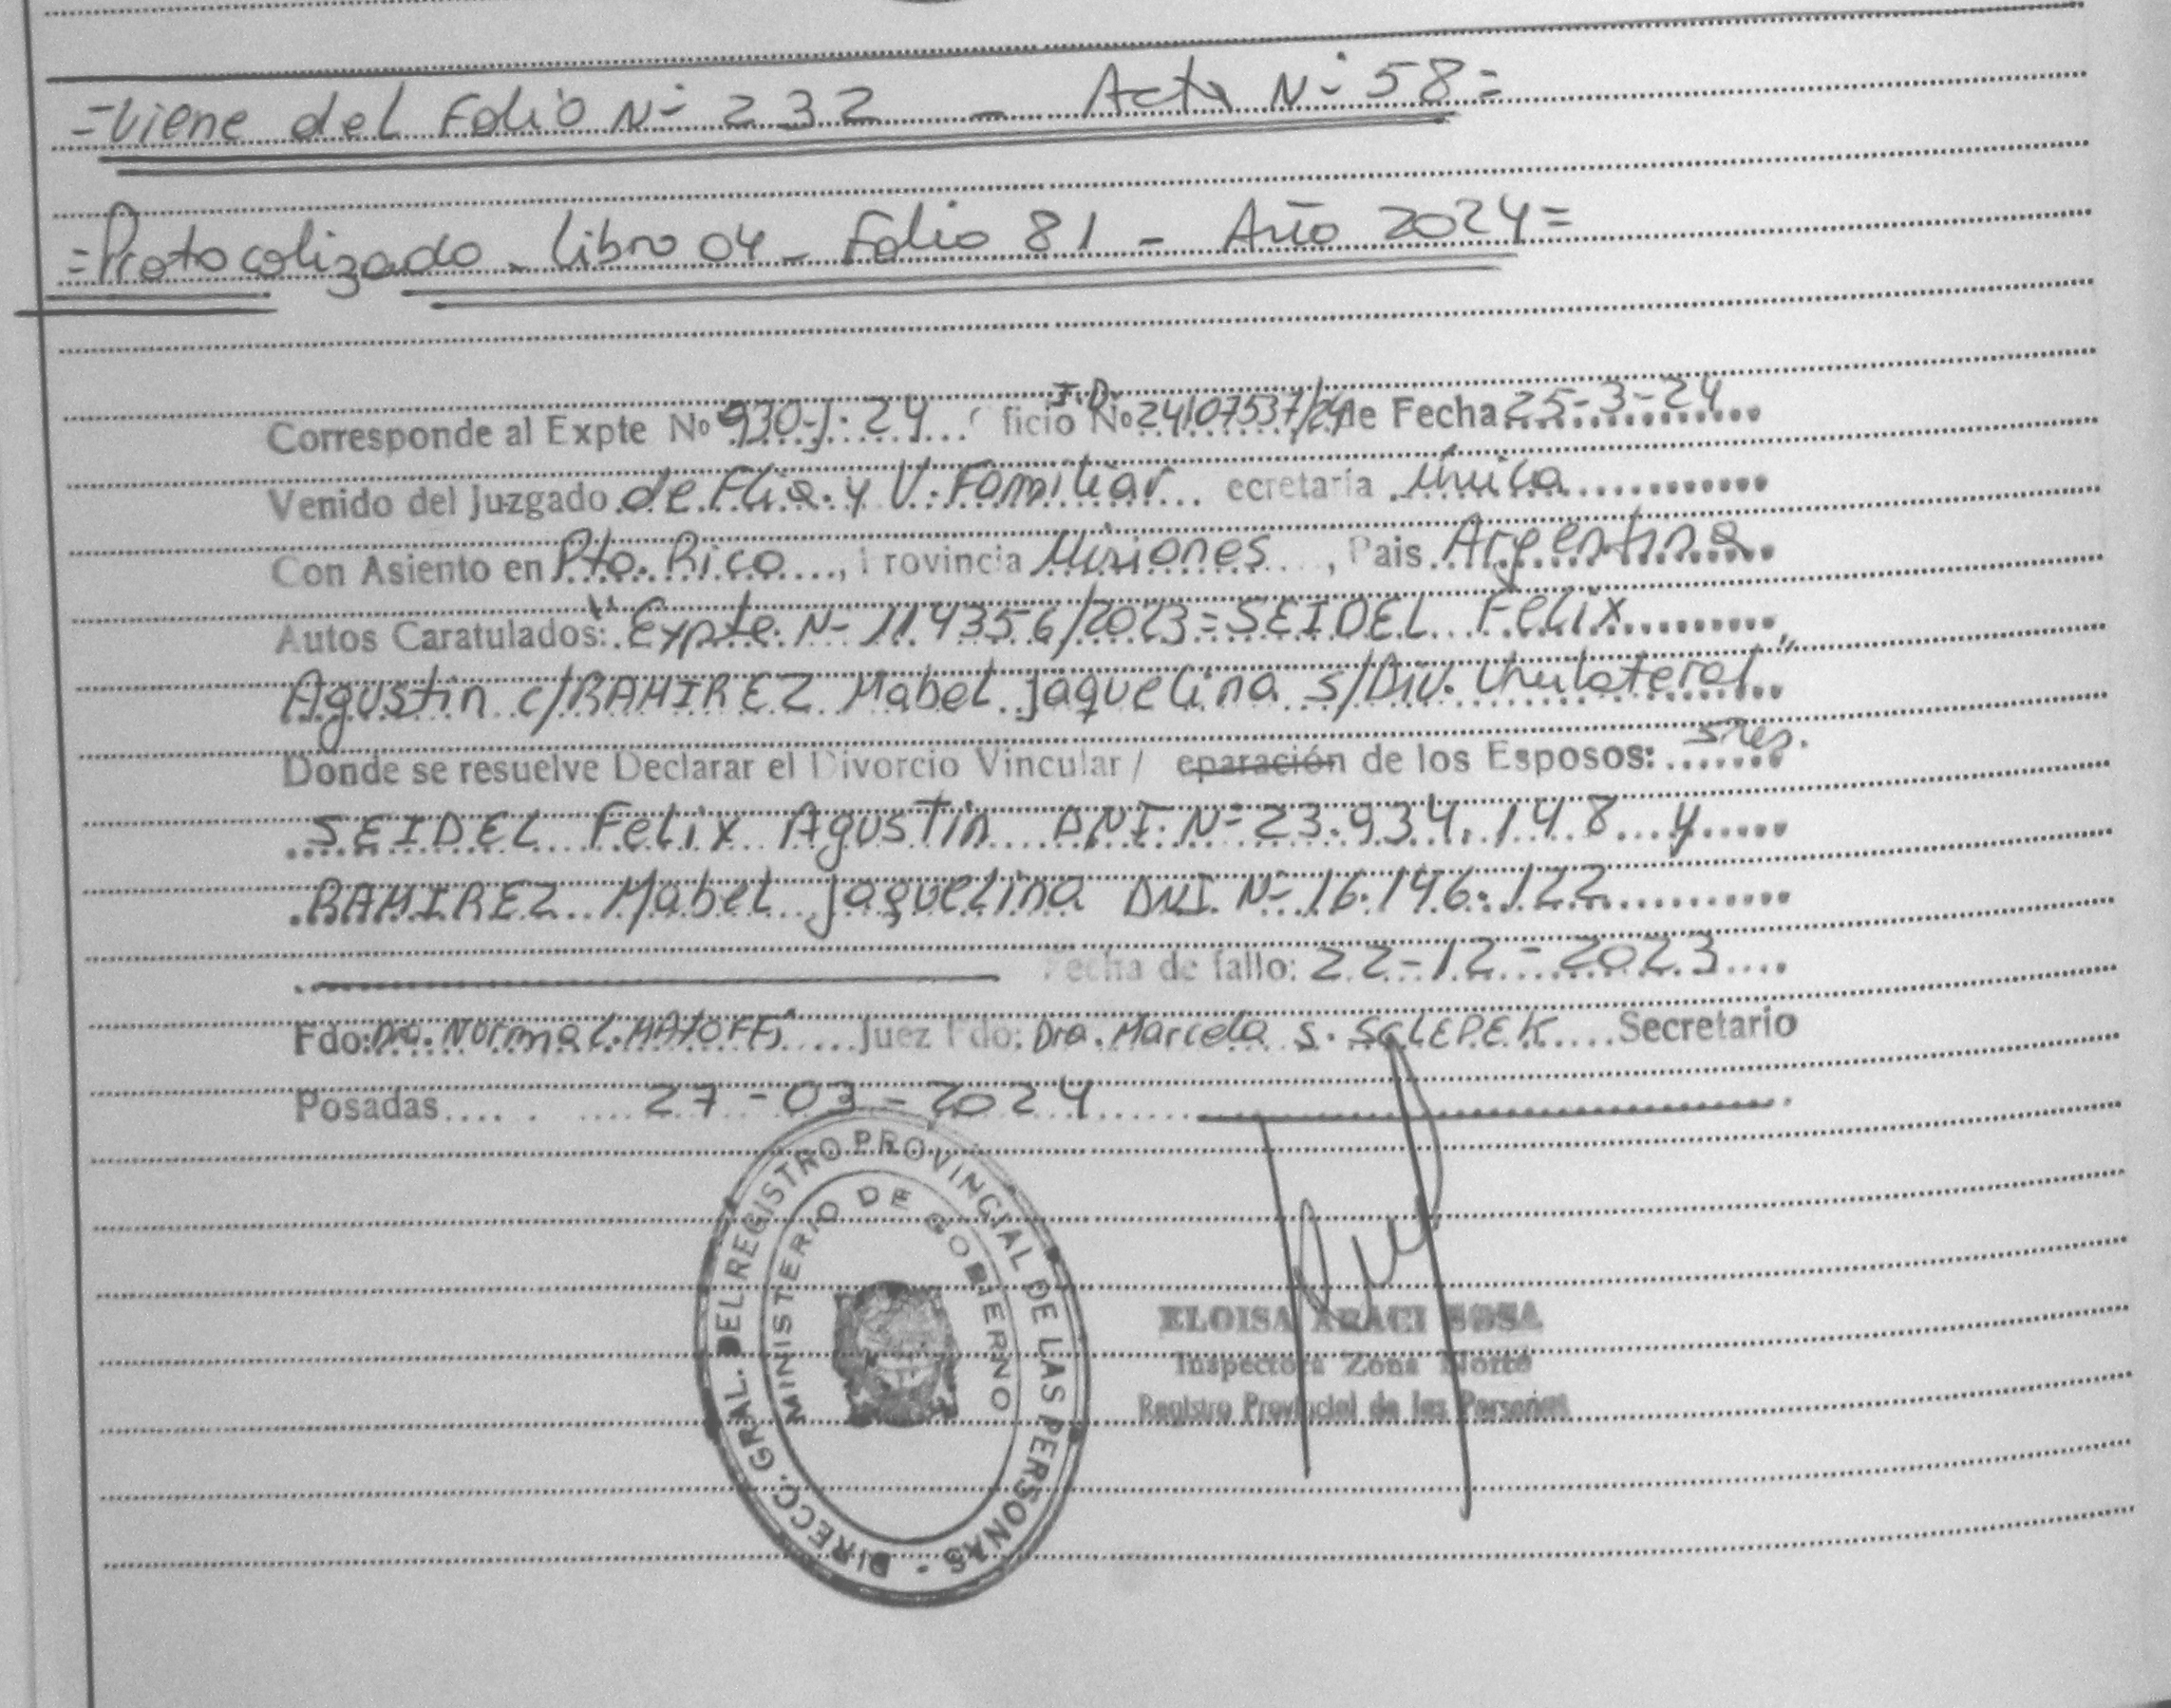 =Viene del Folio Nº 232 - Acta Nº 58=
=Protocolizado - Libro 04 - Folio 81 - Año 2024=
Corresponde al Expte No 930-J-24 ficio I.D. No 24107537/24 de Fecha 25-3-24
Venido del Juzgado de Flia. y V. Familiar ecretaria Unica
Con Asiento en Pto. Rico, Provincia Misiones, Pais Argentina
Autos Caratulados: "Expte Nº 114356/2023=SEIDEL Felix
Agustin c/RAMIREZ Mabel Jaquelina s/Div. Unilateral"
Donde se resuelve Declarar el Divorcio Vincular / eparación de los Esposos: Sres.
SEIDEL Felix Agustin DNI Nº 23.934.148 y
RAMIREZ Mabel Jaquelina DNI Nº 16.146.122
Fecha de fallo: 22-12-2023
Fdo: Dra. Norma L. Juez Fdo: Dra. Marcela S. Secretario
Posadas 27-03-2024
DIRECC. GRAL. DEL REGISTRO PROVINCIAL DE LAS PERSONAS -
MINISTERIO DE GOBIERNO
ELOISA ARACI SOSA
Inspectora Zona Norte
Registro Provincial de las Personas